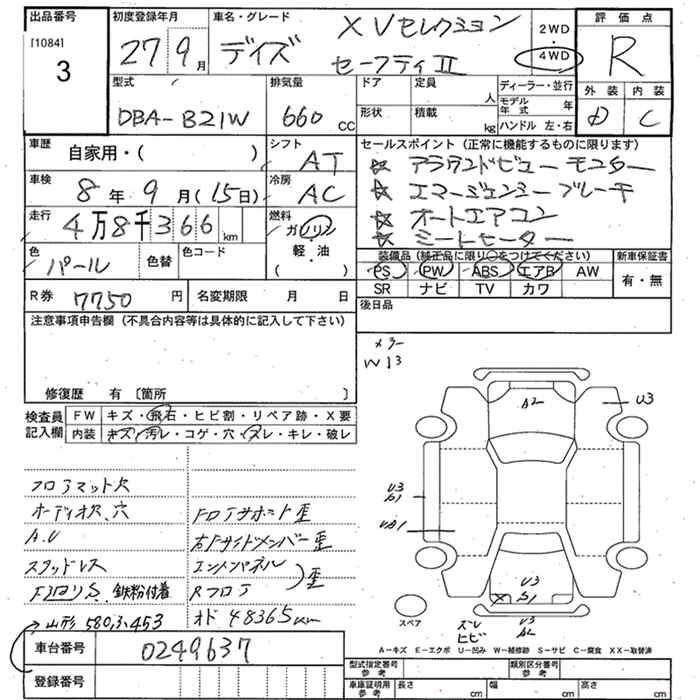 出品番号 初度登録年月 車名・グレード 2WD 評価点
[1084] 27 9月 デイズ XVセレクション 4WD R
3 セーフティⅡ
型式 排気量 ドア 定員 人 ディーラー・並行 外装 内装
DBA-B21W 660 CC 形状 積載 kg モデル年式 年 D C
ハンドル 左・右
車歴 自家用・( ) シフト AT セールスポイント(正常に機能するものに限ります)
☆ アラウンドビューモニター
車検 8年 9月(15日) 冷房 AC ☆ エマージェンシーブレーキ
走行 4万8千366km 燃料 ガソリン ☆ オートエアコン
軽・油 ☆ シートヒーター
( )
色 パール 色替 色コード 装備品(純正品に限り○をつけてください) 新車保証書
PS PW ABS エアB AW 有・無
SR ナビ TV カワ
R券 7750円 名変期限 月 日 後日品
注意事項申告欄(不具合内容等は具体的に記入して下さい)
W13
修復歴 有〔箇所 〕
検査員記入欄 FW キズ・飛石・ヒビ割・リペア跡・X要
内装 キズ・汚レ・コゲ・穴・スレ・キレ・破レ
A2
U3
U3
フロアマット穴
オーディオ穴、穴 Fロアサポート歪
A.U 右Fサイドメンバー歪
スタッドレス エンドパネル
鉄粉付着 Rフロア 歪
→山形 580.3453 オド 48365km
U3
S1
スペア
ズレ
ヒビ
U3
A2
A-キズ E-エクボ U-凹み W-補修跡 S-サビ C-腐食 XX-取替済
車台番号 0249637
登録番号
型式指定番号 参考 類別区分番号 参考
車庫証明用 参考 長さ cm 幅 cm 高さ cm